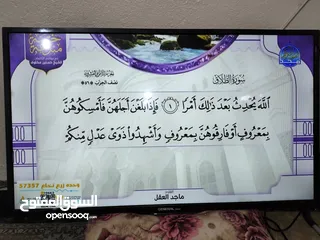 سورة الطلاق
اللَّهَ يُحْدِثُ بَعْدَ ذَٰلِكَ أَمْرًا ۝١ فَإِذَا بَلَغْنَ أَجَلَهُنَّ فَأَمْسِكُوهُنَّ
بِمَعْرُوفٍ أَوْ فَارِقُوهُنَّ بِمَعْرُوفٍ وَأَشْهِدُوا ذَوَىْ عَدْلٍ مِّنكُمْ
ماجد العقل
السوق المفتوح
opensooq.com